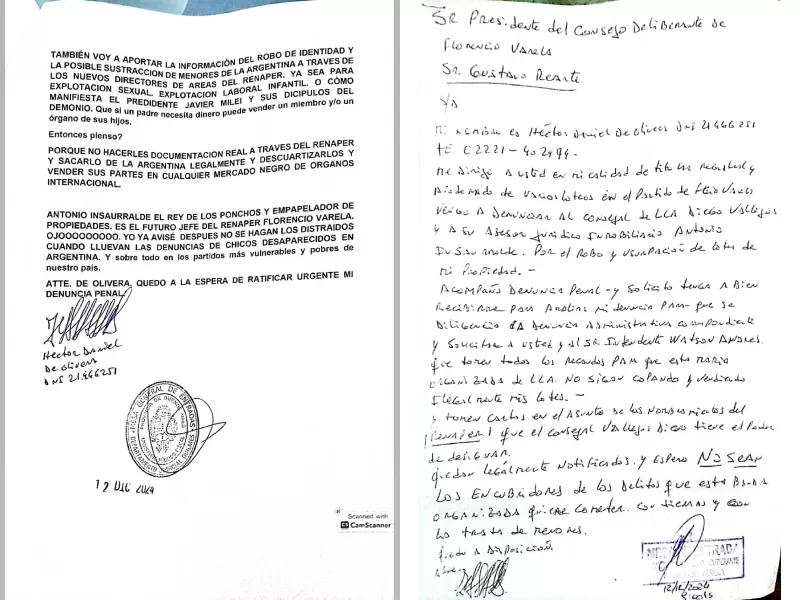 TAMBIÉN VOY A APORTAR LA INFORMACIÓN DEL ROBO DE IDENTIDAD Y
LA POSIBLE SUSTRACCION DE MENORES DE LA ARGENTINA A TRAVES DE
LOS NUEVOS DIRECTORES DE AREAS DEL RENAPER. YA SEA PARA
EXPLOTACION SEXUAL. EXPLOTACION LABORAL INFANTIL. O CÓMO
MANIFIESTA EL PREDIDENTE JAVIER MILEI Y SUS DICIPULOS DEL
DEMONIO. Que si un padre necesita dinero puede vender un miembro y/o un
órgano de sus hijos.
Entonces pienso?
PORQUE NO HACERLES DOCUMENTACION REAL A TRAVES DEL RENAPER
Y SACARLO DE LA ARGENTINA LEGALMENTE Y DESCUARTIZARLOS Y
VENDER SUS PARTES EN CUALQUIER MERCADO NEGRO DE ORGANOS
INTERNACIONAL.
ANTONIO INSAURRALDE EL REY DE LOS PONCHOS Y EMPAPELADOR DE
PROPIEDADES. ES EL FUTURO JEFE DEL RENAPER FLORENCIO VARELA.
OJOOOOOOOOO. YO YA AVISÉ DESPUES NO SE HAGAN LOS DISTRAIDOS
CUANDO LLUEVAN LAS DENUNCIAS DE CHICOS DESAPARECIDOS EN
ARGENTINA. Y sobre todo en los partidos más vulnerables y pobres de
nuestro país.
ATTE. DE OLIVERA, QUEDO A LA ESPERA DE RATIFICAR URGENTE MI
DENUNCIA PENAL
Héctor Daniel
De olivera
DNI 21.466251
MESA GENERAL DE ENTRADAS
DEPARTAMENTO JUDICIAL QUILMES
12 DIC 2024
Scanned with
CS CamScanner
SR Presidente del Consejo Deliberante de
Florencio Varela
Sr. Gustavo Rearte.
Mi nombre es Héctor Daniel De olivera DNI 21.466251
TE 02221-402494.
Me dirijo a usted en mi calidad de titular registral y
Apoderado de varios loteos en el Partido de Fcio Varela
vengo a denunciar al consejal de LLA Diego Vallejos
y a su Asesor Jurídico Inmobiliario Antonio
Insaurralde. Por el Robo y usurpación de lotes de
mi Propiedad.-
Acompaño Denuncia Penal - y solicito tenga a bien
Recibirme para Ampliar mi denuncia para que se
Diligencie la Denuncia Administrativa correspondiente
y solicitar a usted y al Sr. Intendente Watson Andres.
que tomen todos los recaudos para que esta mafia
organizada de LLA. No sigan copando y vendiendo
Ilegalmente mis lotes.-
y tomen cartas en el Asunto de los Nombramientos del
Renaper! que el consejal Vallejos Diego tiene el Poder
de designar.
quedan legalmente Notificados. y espero No SEAN
LOS ENCUBRIDORES de los delitos que esta Banda
ORGANIZADA quiere cometer. con tierras y con
la trata de menores.
quedo a Disposición.
Atte.
MESA DE ENTRADA
12/12/2024